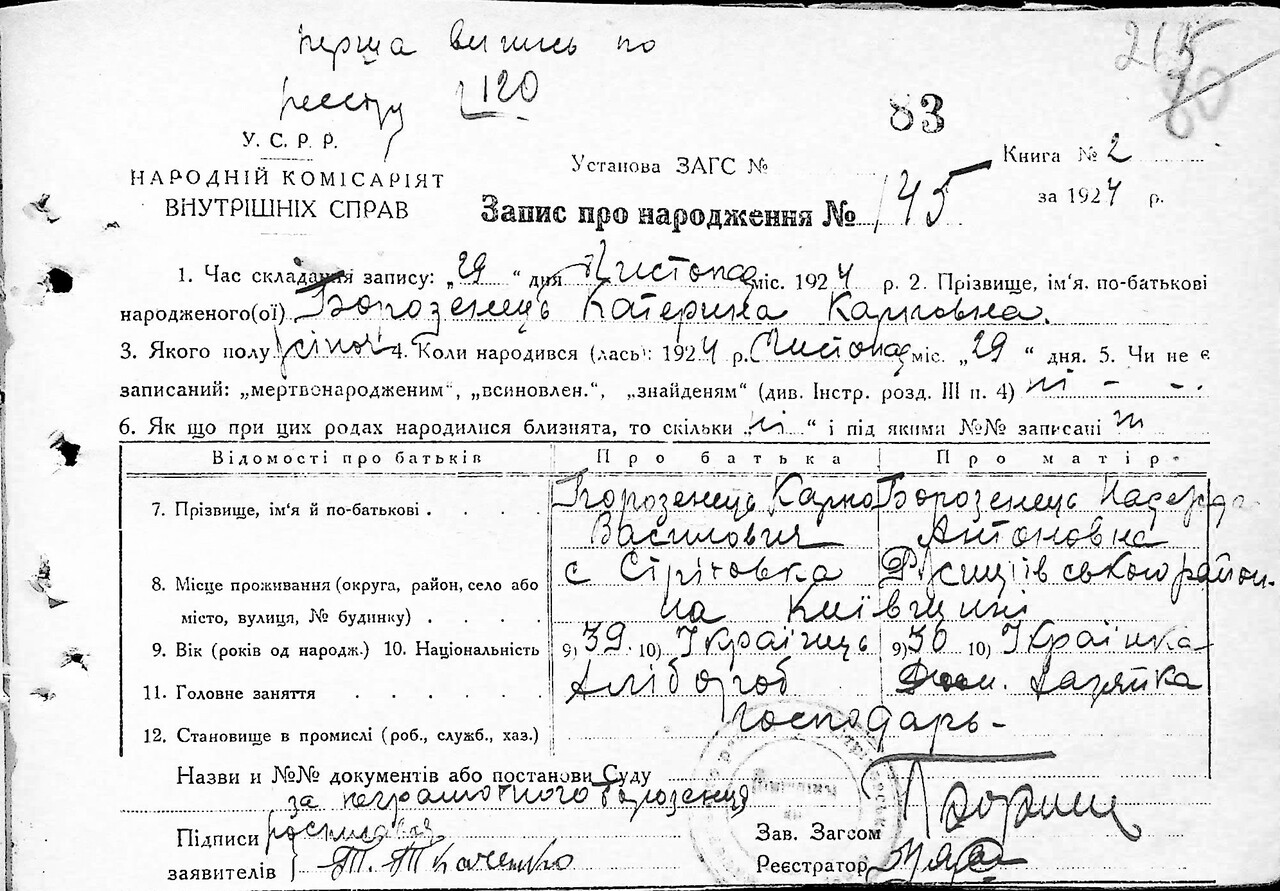 перша випись по
реєстру 120
215
80
83
У. С. Р. Р.
НАРОДНІЙ КОМІСАРІЯТ
ВНУТРІШНІХ СПРАВ
Установа ЗАГС №
Книга № 2
за 1924 р.
Запис про народження № 145
1. Час складання запису: „29“ дня Листопад міс. 1924 р. 2. Прізвище, ім‘я. по-батькові
народженого(ої) Борозенець Катерина Карповна.
3. Якого полу жіноч 4. Коли народився (лась): 1924 р. Листопад міс. „29“ дня. 5. Чи не є
записаний: „мертвонародженим“, „всиновлен.“, „знайденям“ (див. Інстр. розд. III п. 4) ні - -.
6. Як що при цих родах народилися близнята, то скільки „ні“ і під якими №№ записані ні
Відомості про батьків Про батька Про матір
7. Прізвище, ім‘я й по-батькові . . . . Борозенець Карпо Борозенець Надежда
Василович Антоновна
8. Місце проживання (округа, район, село або с Стрітовка район.
місто, вулиця, № будинку) . . . . на Київщині
9. Вік (років од народж.) 10. Національність 9) 39. 10) Українець 9) 30 10) Українка
11. Головне заняття . . . . . . Хлібороб Дом. хазяйка
12. Становище в промислі (роб., служб., хаз.) господарь-
Назви и №№ документів або постанови Суду
за неграмотного Борозенця
Підписи росписався
заявителів Т. Ткаченко
Зав. Загсом
Реєстратор